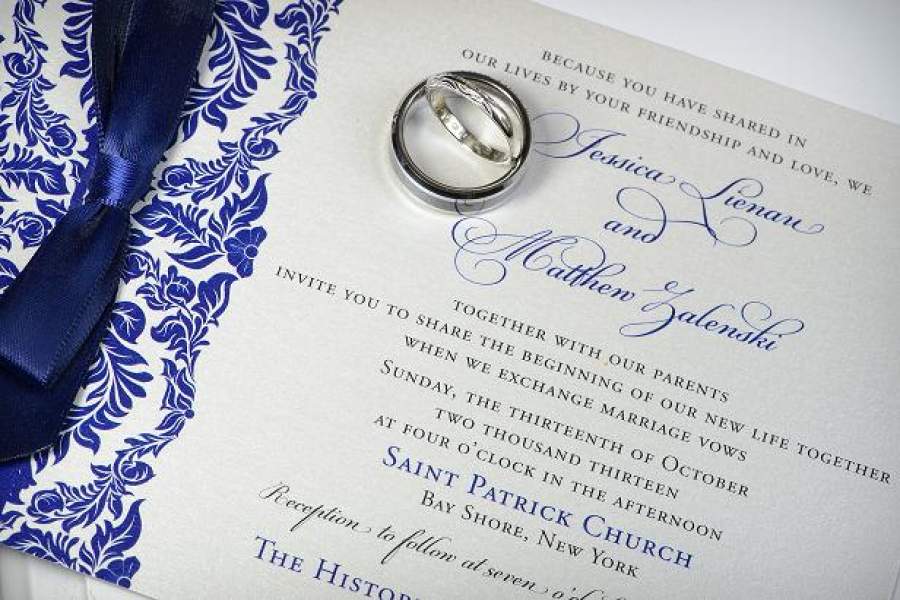 BECAUSE YOU HAVE SHARED IN
OUR LIVES BY YOUR FRIENDSHIP AND LOVE, WE
Jessica Lienau
and
Matthew Zalenski
TOGETHER WITH OUR PARENTS
INVITE YOU TO SHARE THE BEGINNING OF OUR NEW LIFE TOGETHER
WHEN WE EXCHANGE MARRIAGE VOWS
SUNDAY, THE THIRTEENTH OF OCTOBER
TWO THOUSAND THIRTEEN
AT FOUR O'CLOCK IN THE AFTERNOON
SAINT PATRICK CHURCH
BAY SHORE, NEW YORK
Reception to follow at seven o'
THE HISTOR